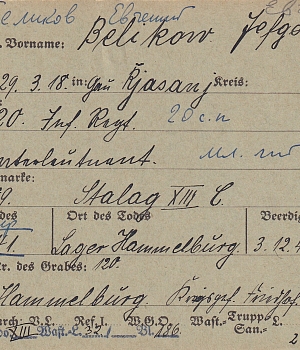 Беликов Евгений
Vorname: Belikow Jefge
29. 3. 18. in: Gau Rjasanj Kreis:
20. Inf. Regt. 20 с.п
nterleutnant. мл. лей
marke:
9. Stalag XIII C.
des Ort des Todes Beerdig
41 Lager Hammelburg. 3. 12. 4
Nr. des Grabes: 120.
Hammelburg. Krgsgef. Friedhof
durch: V. L. Ref. I. W.G.O. Wast.- Trupp
XIII Wast.-L. 327/ Bl. 186. L.